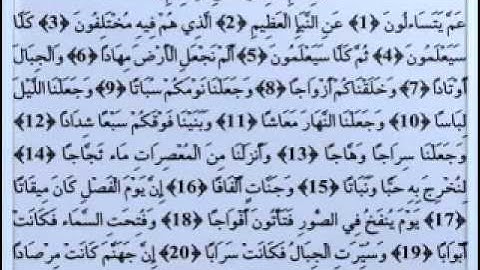 عَمَّ يَتَسَاءَلُونَ ﴿1﴾ عَنِ النَّبَإِ الْعَظِيمِ ﴿2﴾ الَّذِي هُمْ فِيهِ مُخْتَلِفُونَ ﴿3﴾ كَلَّا
سَيَعْلَمُونَ ﴿4﴾ ثُمَّ كَلَّا سَيَعْلَمُونَ ﴿5﴾ أَلَمْ نَجْعَلِ الْأَرْضَ مِهَادًا ﴿6﴾ وَالْجِبَالَ
أَوْتَادًا ﴿7﴾ وَخَلَقْنَاكُمْ أَزْوَاجًا ﴿8﴾ وَجَعَلْنَا نَوْمَكُمْ سُبَاتًا ﴿9﴾ وَجَعَلْنَا اللَّيْلَ
لِبَاسًا ﴿10﴾ وَجَعَلْنَا النَّهَارَ مَعَاشًا ﴿11﴾ وَبَنَيْنَا فَوْقَكُمْ سَبْعًا شِدَادًا ﴿12﴾
وَجَعَلْنَا سِرَاجًا وَهَّاجًا ﴿13﴾ وَأَنزَلْنَا مِنَ الْمُعْصِرَاتِ مَاءً ثَجَّاجًا ﴿14﴾
لِنُخْرِجَ بِهِ حَبًّا وَنَبَاتًا ﴿15﴾ وَجَنَّاتٍ أَلْفَافًا ﴿16﴾ إِنَّ يَوْمَ الْفَصْلِ كَانَ مِيقَاتًا
﴿17﴾ يَوْمَ يُنفَخُ فِي الصُّورِ فَتَأْتُونَ أَفْوَاجًا ﴿18﴾ وَفُتِحَتِ السَّمَاءُ فَكَانَتْ
أَبْوَابًا ﴿19﴾ وَسُيِّرَتِ الْجِبَالُ فَكَانَتْ سَرَابًا ﴿20﴾ إِنَّ جَهَنَّمَ كَانَتْ مِرْصَادًا